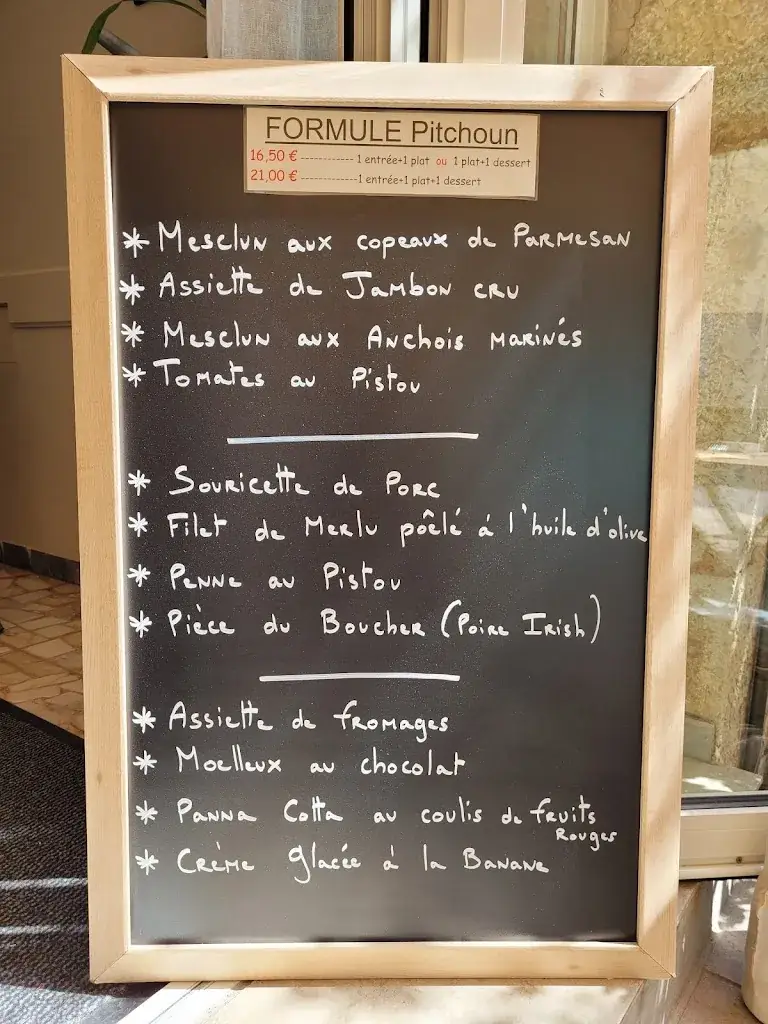 FORMULE Pitchoun
16,50 € ------------ 1 entrée+1 plat ou 1 plat+1 dessert
21,00 € ------------ 1 entrée+1 plat+1 dessert
* Mesclun aux copeaux de Parmesan
* Assiette de Jambon cru
* Mesclun aux Anchois marinés
* Tomates au Pistou
* Souricette de Porc
* Filet de Merlu pôêlé à l'huile d'olive
* Penne au Pistou
* Pièce du Boucher (Poire Irish)
* Assiette de fromages
* Moelleux au chocolat
* Panna Cotta au coulis de fruits
Rouges
* Crème glacée à la Banane